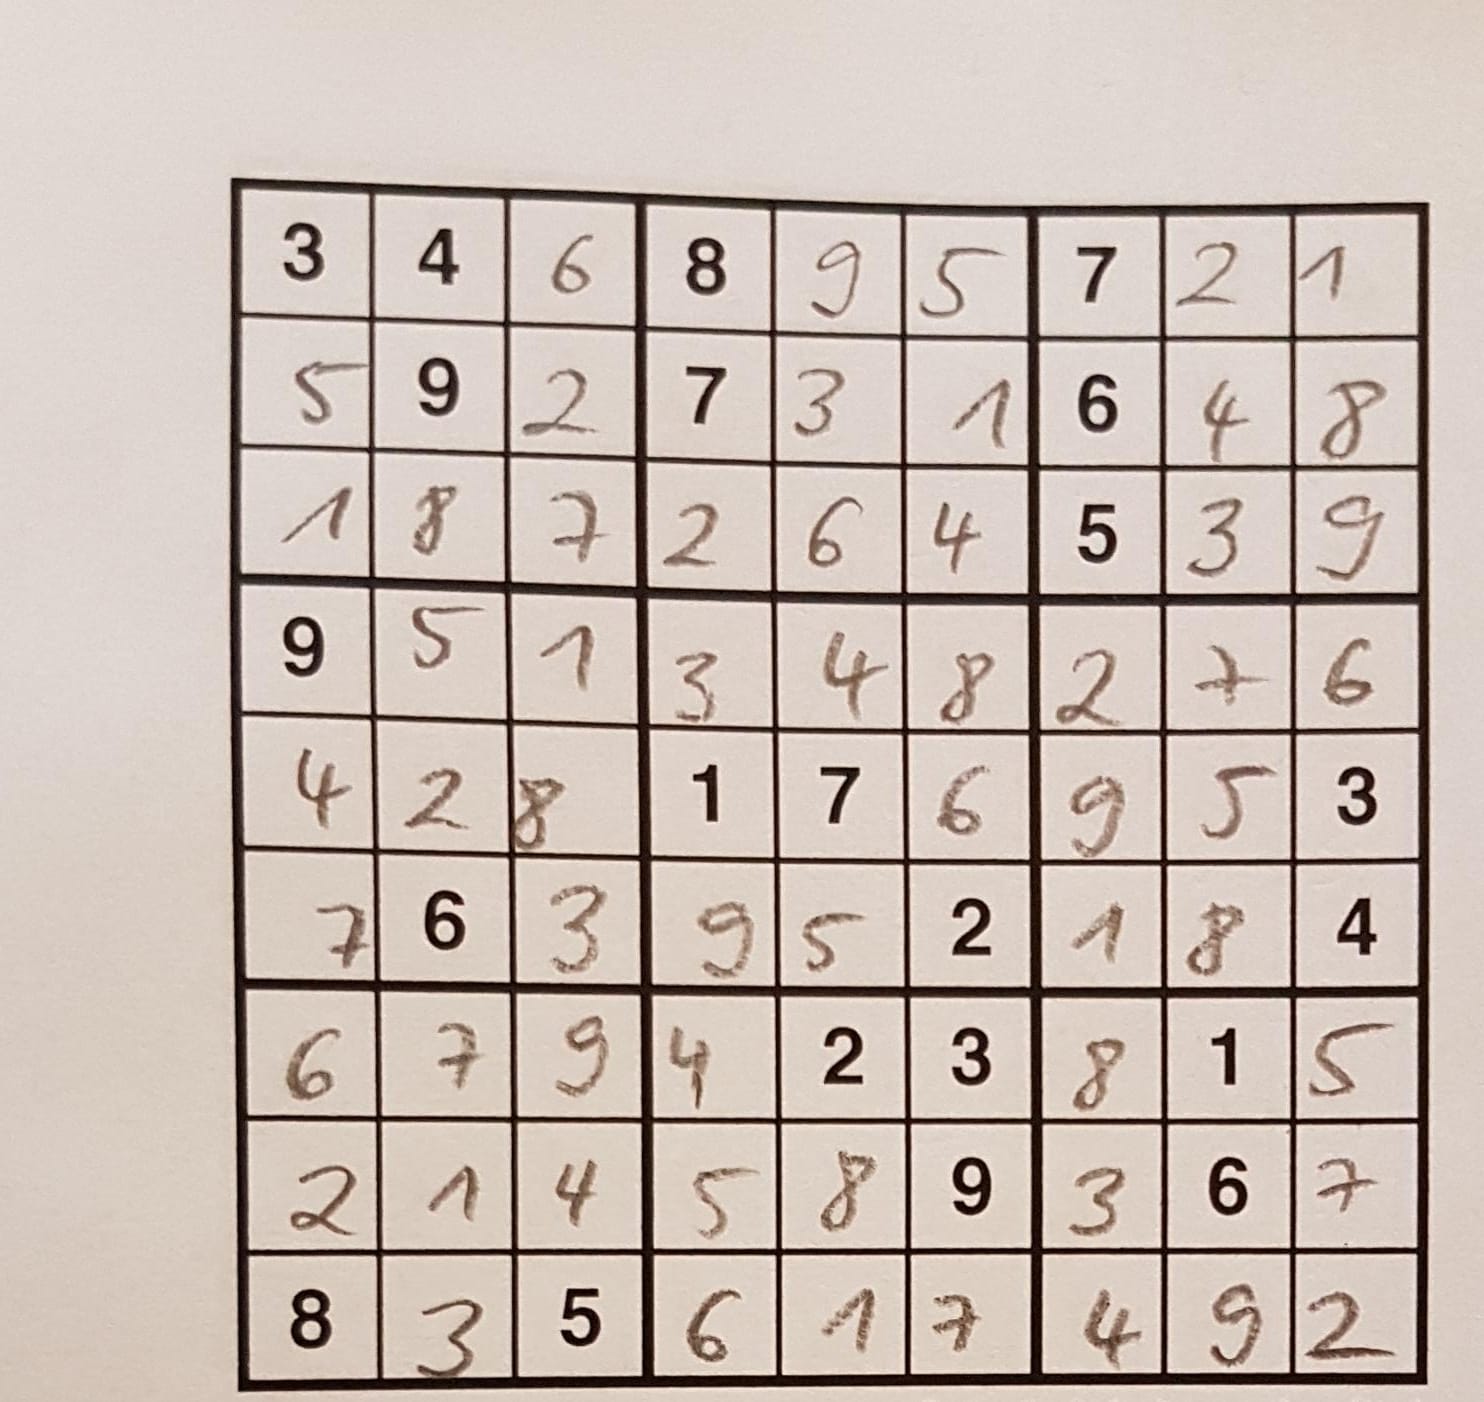 3 4 6 8 9 5 7 2 1
5 9 2 7 3 1 6 4 8
1 8 7 2 6 4 5 3 9
9 5 1 3 4 8 2 7 6
4 2 8 1 7 6 9 5 3
7 6 3 9 5 2 1 8 4
6 7 9 4 2 3 8 1 5
2 1 4 5 8 9 3 6 7
8 3 5 6 1 7 4 9 2